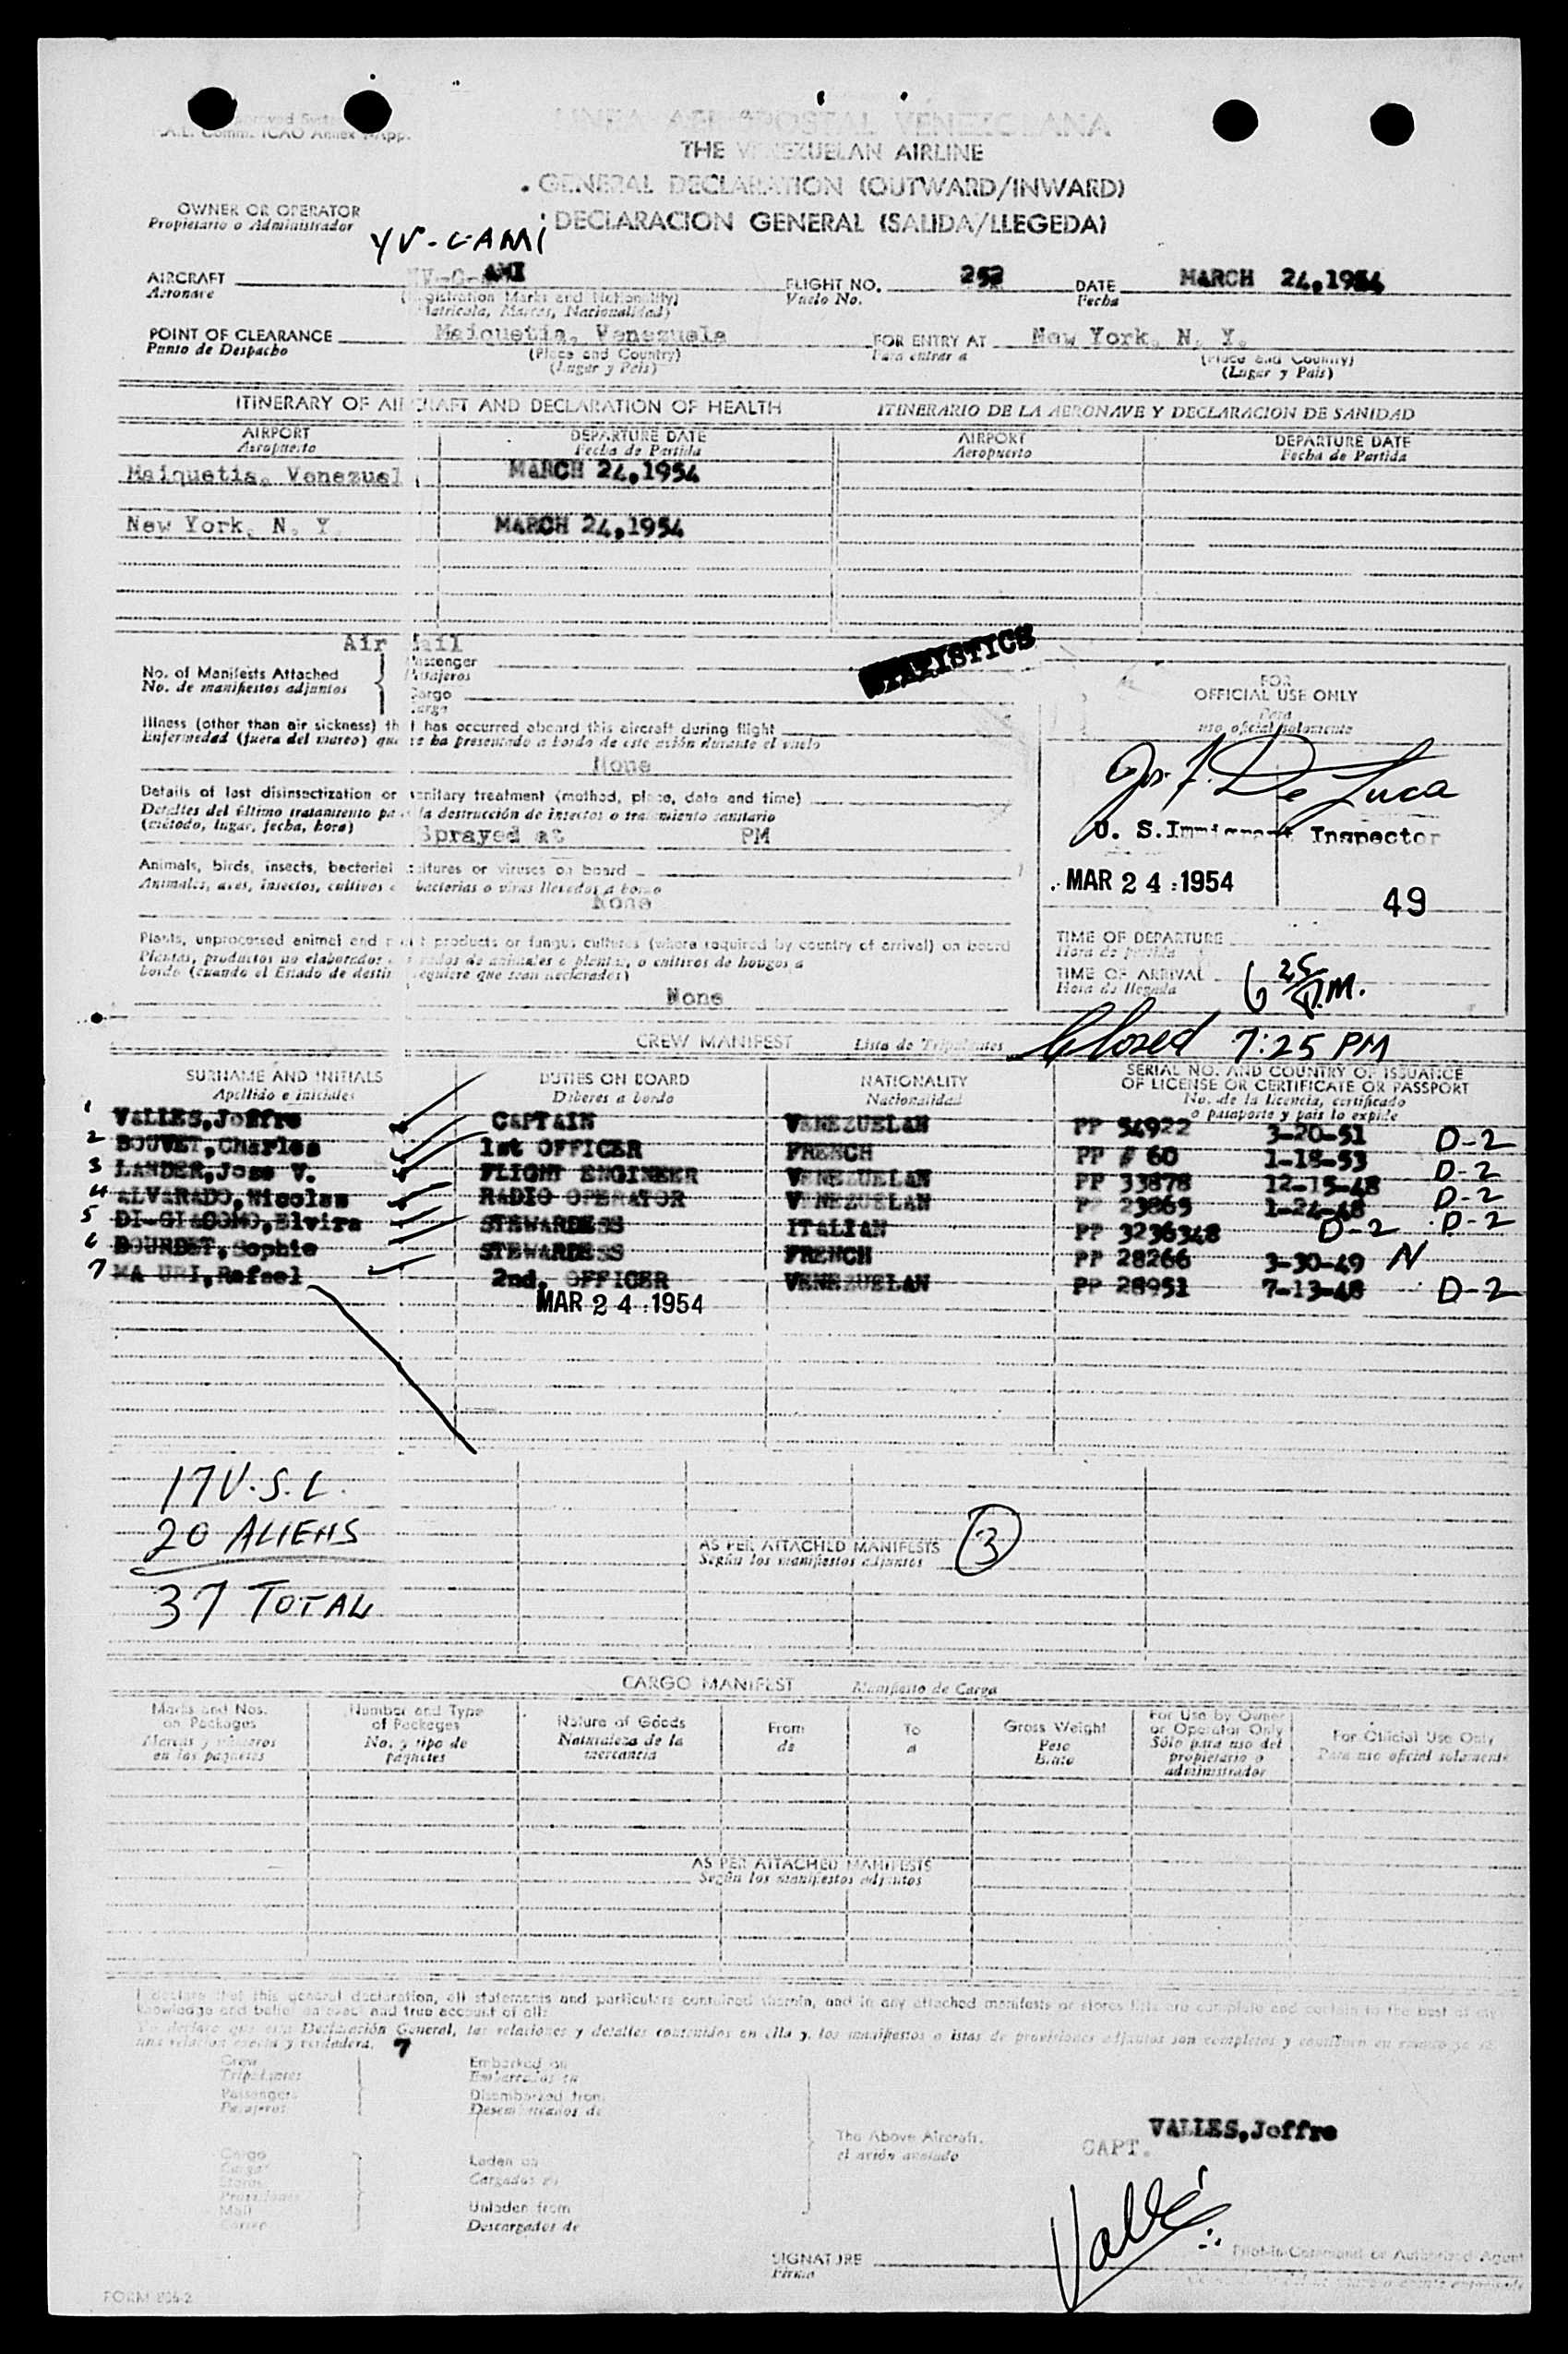 LINEA AEROPOSTAL VENEZOLANA
THE VENEZUELAN AIRLINE
GENERAL DECLARATION (OUTWARD/INWARD)
DECLARACION GENERAL (SALIDA/LLEGEDA)
OWNER OR OPERATOR
Propietario o Administrador
YV-C-AMI
AIRCRAFT YV-C-AMI FLIGHT NO. 252 DATE MARCH 24,1954
Aeronave (Registration Marks and Nationality) Vuelo No. Fecha
(Matricula, Marcas, Nacionalidad)
POINT OF CLEARANCE Maiquetia, Venezuela FOR ENTRY AT New York, N. Y.
Punto de Despacho (Place and Country) Para entrar a (Place and Country)
(Lugar y Pais) (Lugar y Pais)
ITINERARY OF AIRCRAFT AND DECLARATION OF HEALTH ITINERARIO DE LA AERONAVE Y DECLARACION DE SANIDAD
AIRPORT DEPARTURE DATE AIRPORT DEPARTURE DATE
Aeropuerto Fecha de Partida Aeropuerto Fecha de Partida
Maiquetia, Venezuel MARCH 24,1954
New York, N. Y. MARCH 24,1954
Air Mail
STATISTICS
No. of Manifests Attached Passenger
No. de manifiestos adjuntos Pasajeros
Cargo
Carga
FOR
OFFICIAL USE ONLY
Para
uso oficial solamente
Illness (other than air sickness) that has occurred aboard this aircraft during flight
Enfermedad (fuera del mareo) que se ha presentado a bordo de este avión durante el vuelo
None
Jos. F. De Luca
U. S. Immigrant Inspector
MAR 24 1954
49
Details of last disinsectization or sanitary treatment (method, place, date and time)
Detalles del último tratamiento para la destrucción de insectos o tratamiento sanitario
(método, lugar, fecha, hora)
Sprayed at PM
Animals, birds, insects, bacterial cultures or viruses on board
Animales, aves, insectos, cultivos de bacterias o virus llevados a bordo
None
Plants, unprocessed animal and plant products or fungus cultures (where required by country of arrival) on board
bordo (cuando el Estado de destino requiere que sean declarados)
None
TIME OF DEPARTURE
Hora de partida
TIME OF ARRIVAL 6 25 P.M.
Hora de llegada
Closed 7:25 PM
CREW MANIFEST Lista de Tripulantes
SURNAME AND INITIALS DUTIES ON BOARD NATIONALITY SERIAL NO. AND COUNTRY OF ISSUANCE
OF LICENSE OR CERTIFICATE OR PASSPORT
Apellido e iniciales Diberes a bordo Nacionalidad No. de la licencia, certificado
o pasaporte y pais lo expide
1 VALLES,Joffre CAPTAIN VENEZUELAN PP 54922 3-20-51 D-2
2 BOUVET,Charles 1st OFFICER FRENCH PP # 60 1-18-53 D-2
3 LANDER,Jose V. FLIGHT ENGINEER VENEZUELAN PP 33878 12-15-48 D-2
4 ALVARADO,Nicolas RADIO OPERATOR VENEZUELAN PP 23865 1-24-48 D-2
5 DI-GIACOMO,Elvira STEWARDESS ITALIAN PP 3236348 D-2
6 BOURDET,Sophie STEWARDESS FRENCH PP 28266 3-30-49 N
7 MA URI,Rafael 2nd. OFFICER VENEZUELAN PP 28951 7-13-48 D-2
MAR 24 1954
17 U.S.C.
20 ALIENS
37 TOTAL
AS PER ATTACHED MANIFESTS 3
Según los manifiestos adjuntos
CARGO MANIFEST Manifiesto de Carga
Marks and Nos.
on Packages
Marcas y números
en los paquetes
Number and Type
of Packages
No. y tipo de
paquetes
Nature of Goods
Naturaleza de la
mercancia
From
de
To
a
Gross Weight
Peso
Bruto
For Use by Owner
or Operator Only
Sólo para uso del
propietario o
administrador
For Official Use Only
Para uso oficial solamente
AS PER ATTACHED MANIFESTS
Según los manifiestos adjuntos
I declare that this general declaration, all statements and particulars contained therein, and in any attached manifests or stores lists are complete and certain to the best of my
knowledge and belief an exact and true account of all:
una relación exacta y verdadera. 7
Crew
Tripulantes
Passengers
Pasajeros
Embarked on
Embarcados en
Disembarked from
Desembarcados de
Cargo
Carga
Stores
Provisiones
Mail
Correo
Laden on
Cargados en
Unladen from
Descargados de
The Above Aircraft.
el avión anotado
VALLES,Joffre
CAPT.
Vallés
SIGNATURE
Firma
Pilot-in-Command or Authorized Agent
FORM 806-2